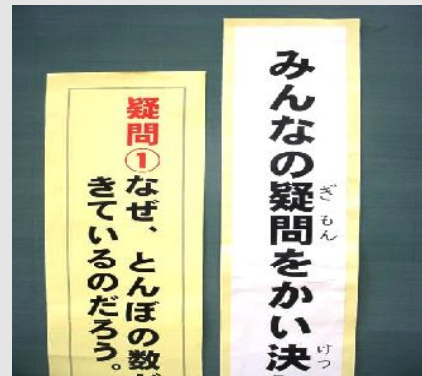 みんなの疑問をかい決
ぎもん
けつ
疑問①なぜ、とんぼの数が
きているのだろう。